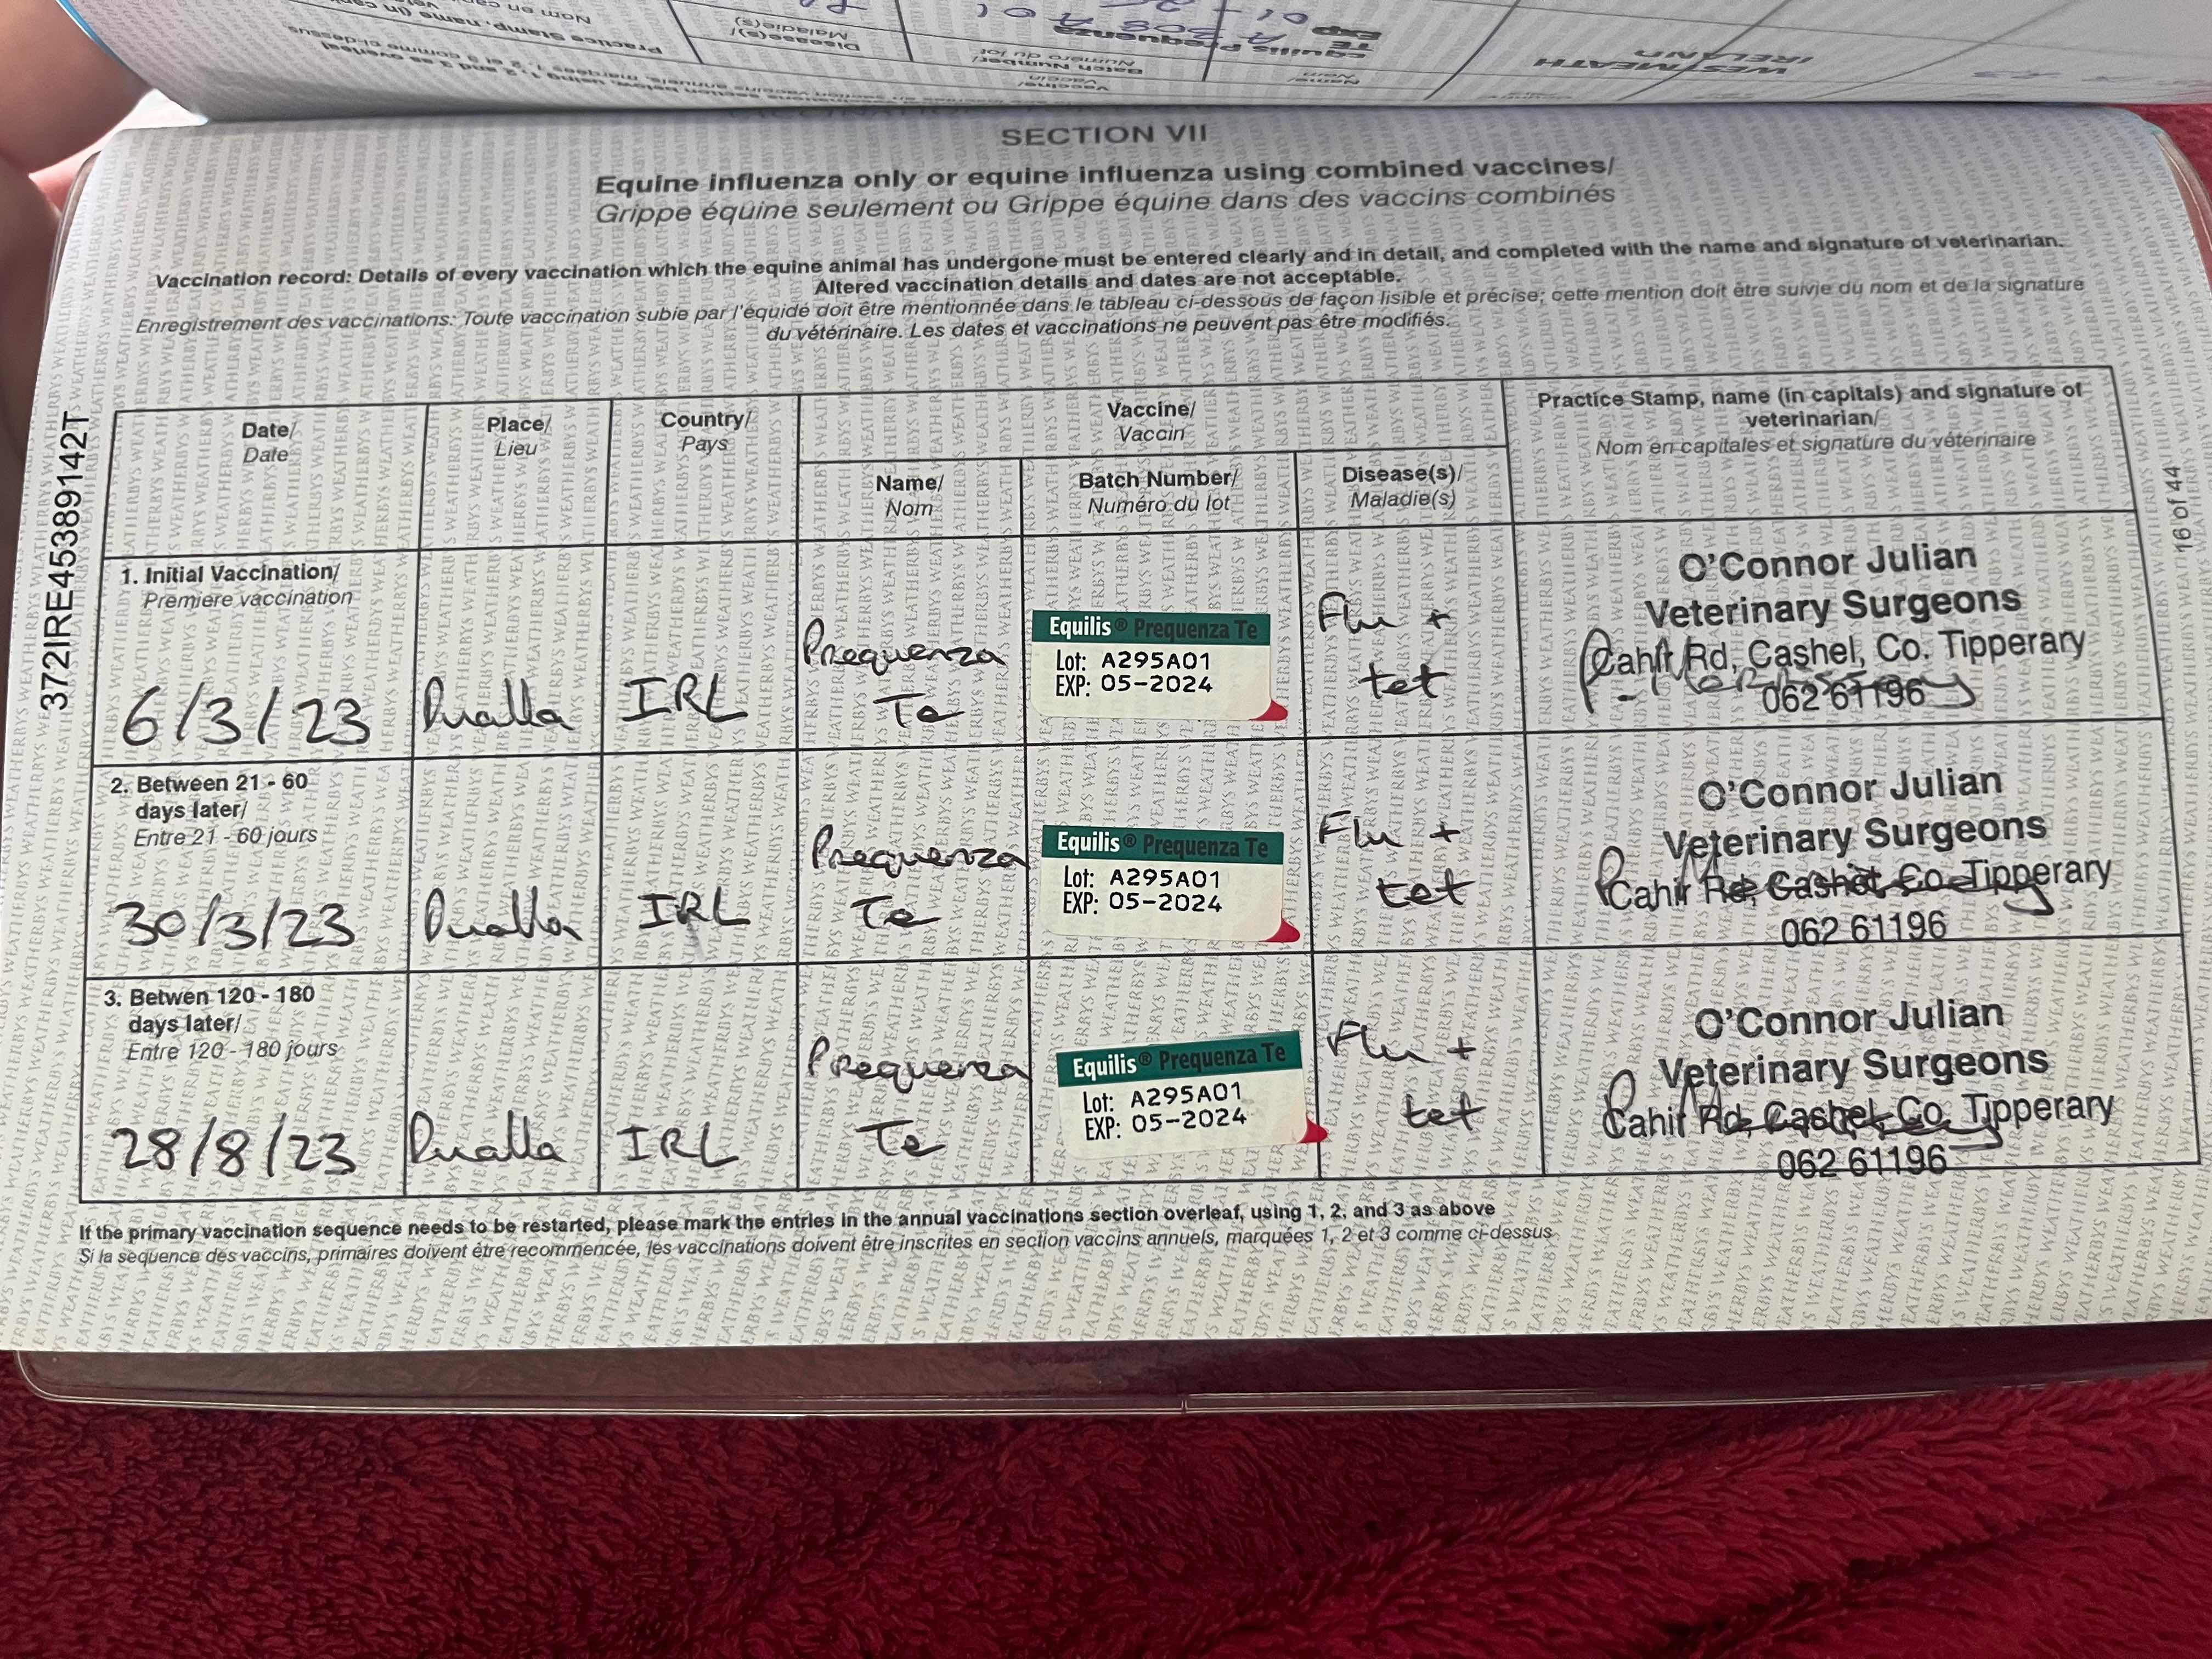 WESTMEATH
IRELAND
SECTION VII
Equine influenza only or equine influenza using combined vaccines/
Grippe équine seulement ou Grippe équine dans des vaccins combinés
Vaccination record: Details of every vaccination which the equine animal has undergone must be entered clearly and in detail, and completed with the name and signature of veterinarian.
Altered vaccination details and dates are not acceptable.
Enregistrement des vaccinations: Toute vaccination subie par l'équidé doit être mentionnée dans le tableau ci-dessous de façon lisible et précise; cette mention doit être suivie du nom et de la signature
du vétérinaire. Les dates et vaccinations ne peuvent pas être modifiés.
372IRE45389142T
16 of 44
Date/
Date
Place/
Lieu
Country/
Pays
Vaccine/
Vaccin
Name/
Nom
Batch Number/
Numéro du lot
Disease(s)/
Maladie(s)
Practice Stamp, name (in capitals) and signature of
veterinarian/
Nom en capitales et signature du vétérinaire
1. Initial Vaccination/
Premiere vaccination
6/3/23
Dualla
IRL
Prequenza
Te
Equilis® Prequenza Te
Lot: A295A01
EXP: 05-2024
Flu +
tet
O'Connor Julian
Veterinary Surgeons
Cahir Rd, Cashel, Co. Tipperary
062 61196
2. Between 21 - 60
days later/
Entre 21 - 60 jours
30/3/23
Dualla
IRL
Prequenza
Te
Equilis® Prequenza Te
Lot: A295A01
EXP: 05-2024
Flu +
tet
O'Connor Julian
Veterinary Surgeons
Cahir Rd, Cashel, Co. Tipperary
062 61196
3. Betwen 120 - 180
days later/
Entre 120 - 180 jours
28/8/23
Dualla
IRL
Prequenza
Te
Equilis® Prequenza Te
Lot: A295A01
EXP: 05-2024
Flu +
tet
O'Connor Julian
Veterinary Surgeons
Cahir Rd, Cashel, Co. Tipperary
062 61196
If the primary vaccination sequence needs to be restarted, please mark the entries in the annual vaccinations section overleaf, using 1, 2, and 3 as above
Si la sequence des vaccins, primaires doivent être recommencée, les vaccinations doivent être inscrites en section vaccins annuels, marquées 1, 2 et 3 comme ci-dessus